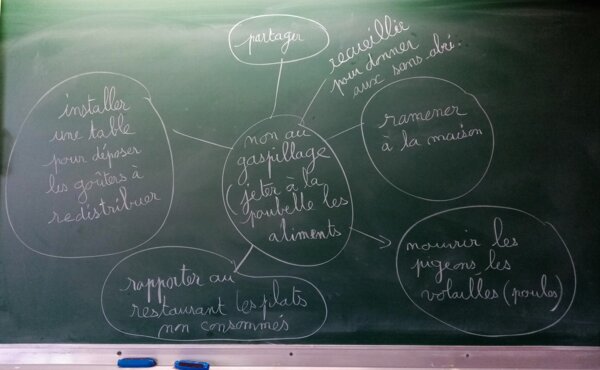 partager
recueillie
pour donner
aux sans abri.
installer
une table
pour déposer
les goûters à
redistribuer
non au
gaspillage
(jeter à la
poubelle les
aliments
ramener
à la maison
rapporter au
restaurant les plats
non consommés
nourrir les
pigeons les
volailles (poules)